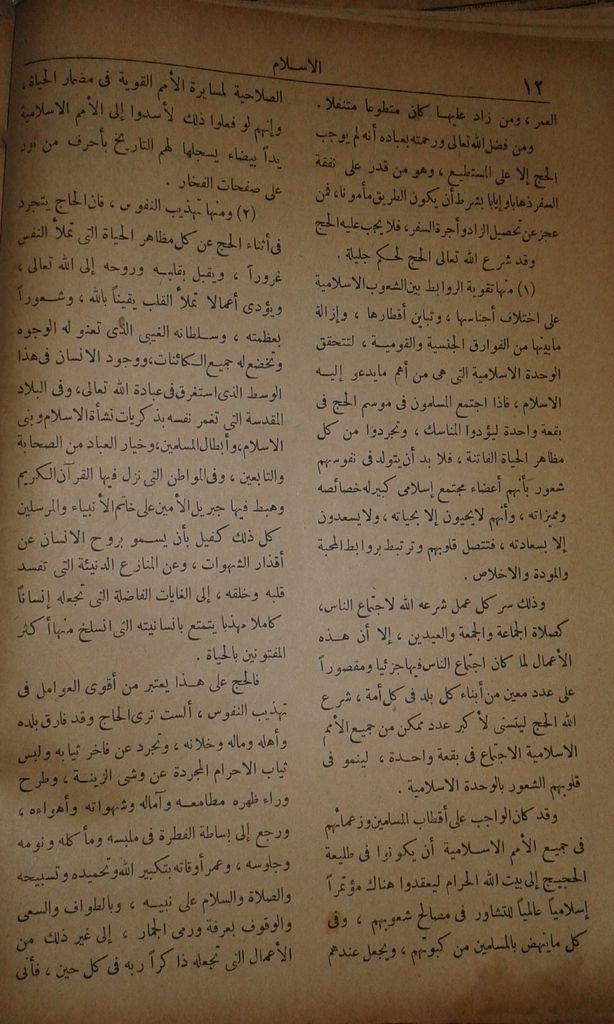 ١٢
الاسلام
العمر ، ومن زاد عليها كان متطوعا متنفلا .
ومن فضل الله تعالى ورحمته بعباده أنه لم يوجب
الحج إلا على المستطيع ، وهو من قدر على نفقة
السفر ذهابا وإيابا بشرط أن يكون الطريق مأمونا ، فمن
عجز عن تحصيل الزاد وأجرة السفر ، فلا يجب عليه الحج
وقد شرع الله تعالى الحج لحكم جليلة .
(١) منها تقوية الروابط بين الشعوب الاسلامية
على اختلاف أجناسها ، وتباين أقطارها ، وإزالة
ما بينها من الفوارق الجنسية والقومية ، لتتحقق
الوحدة الاسلامية التى هى من أهم ما يدعو إليه
الاسلام ، فاذا اجتمع المسلمون فى موسم الحج فى
بقعة واحدة ليؤدوا المناسك ، وتجردوا من كل
مظاهر الحياة الفاتنة ، فلا بد أن يتولد فى نفوسهم
شعور بأنهم أعضاء مجتمع إسلامى كبير له خصائصه
ومميزاته ، وأنهم لا يحيون إلا بحياته ، ولا يسعدون
إلا بسعادته ، فتتصل قلوبهم وترتبط بروابط المحبة
والمودة والاخلاص .
وذلك سر كل عمل شرعه الله لاجتماع الناس ،
كصلاة الجماعة والجمعة والعيدين ، إلا أن هذه
الأعمال لما كان اجتماع الناس فيها جزئيا ومقصوراً
على عدد معين من أبناء كل بلد فى كل أمة ، شرع
الله الحج ليتسنى لأكبر عدد ممكن من جميع الأمم
الاسلامية الاجتماع فى بقعة واحدة ، لينمو فى
قلوبهم الشعور بالوحدة الاسلامية .
وقد كان الواجب على أقطاب المسلمين وزعمائهم
فى جميع الأمم الاسلامية أن يكونوا فى طليعة
الحجيج إلى بيت الله الحرام ليعقدوا هناك مؤتمراً
إسلامياً عالمياً للتشاور فى مصالح شعوبهم ، وفى
كل ما ينهض بالمسلمين من كبوتهم ، ويجعل عندهم
الصلاحية لمسايرة الأمم القوية فى مضمار الحياة ،
وإنهم لو فعلوا ذلك لأسدوا إلى الأمم الاسلامية
يداً بيضاء يسجلها لهم التاريخ بأحرف من نور
على صفحات الفخار .
(٢) ومنها تهذيب النفوس ، فان الحاج يتجرد
فى أثناء الحج عن كل مظاهر الحياة التى تملأ النفس
غروراً ، ويقبل بقلبه وروحه إلى الله تعالى ،
ويؤدى أعمالا تملأ القلب يقيناً بالله ، وشعوراً
بعظمته ، وسلطانه الغيبى الذى تعنو له الوجوه
وتخضع له جميع الكائنات ، ووجود الانسان فى هذا
الوسط الذى استغرق فى عبادة الله تعالى ، وفى البلاد
المقدسة التى تغمر نفسه بذكريات نشأة الاسلام ونبى
الاسلام ، وأبطال المسلمين ، وخيار العباد من الصحابة
والتابعين ، وفى المواطن التى نزل فيها القرآن الكريم
وهبط فيها جبريل الأمين على خاتم الأنبياء والمرسلين
كل ذلك كفيل بأن يسمو بروح الانسان عن
أقذار الشهوات ، وعن المنازع الدنيئة التى تفسد
قلبه وخلقه ، إلى الغايات الفاضلة التى تجعله إنساناً
كاملا مهذبا يتمتع بانسانيته التى انسلخ منها أكثر
المفتونين بالحياة .
فالحج على هذا يعتبر من أقوى العوامل فى
تهذيب النفوس ، ألست ترى الحاج وقد فارق بلده
وأهله وماله وخلانه ، وتجرد عن فاخر ثيابه ولبس
ثياب الاحرام المجردة عن وشى الزينة ، وطرح
وراء ظهره مطامعه وآماله وشهواته وأهواءه ،
ورجع إلى بساطة الفطرة فى ملبسه ومأكله ونومه
وجلوسه ، وعمر أوقاته بتكبير الله وتحميده وتسبيحه
والصلاة والسلام على نبيه ، وبالطواف والسعى
والوقوف بعرفة ورمى الجمار ، إلى غير ذلك من
الأعمال التى تجعله ذاكراً ربه فى كل حين ، فأنى